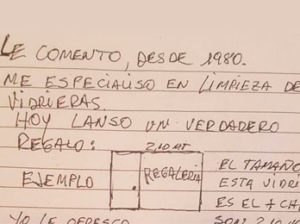 LE COMENTO, DESDE 1980.
ME ESPECIALISO EN LIMPIEZA DE
VIDRIERAS.
HOY LANSO UN VERDADERO
REGALO:
2,10 MT
EJEMPLO
REGALERIA
EL TAMAÑO
ESTA VIDRI
ES EL + CHA
YO LE OFRESCO
SON: 2,10